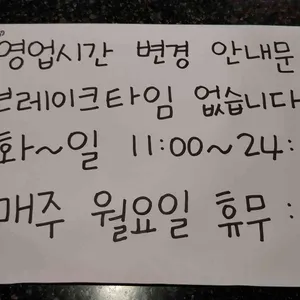 영업시간 변경 안내문
브레이크타임 없습니다
화~일 11:00~24:
매주 월요일 휴무: